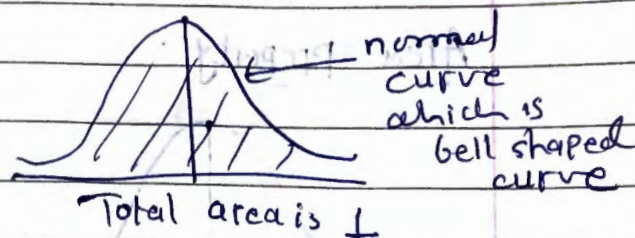 normal
curve
which is
bell shaped
curve
Total area is 1